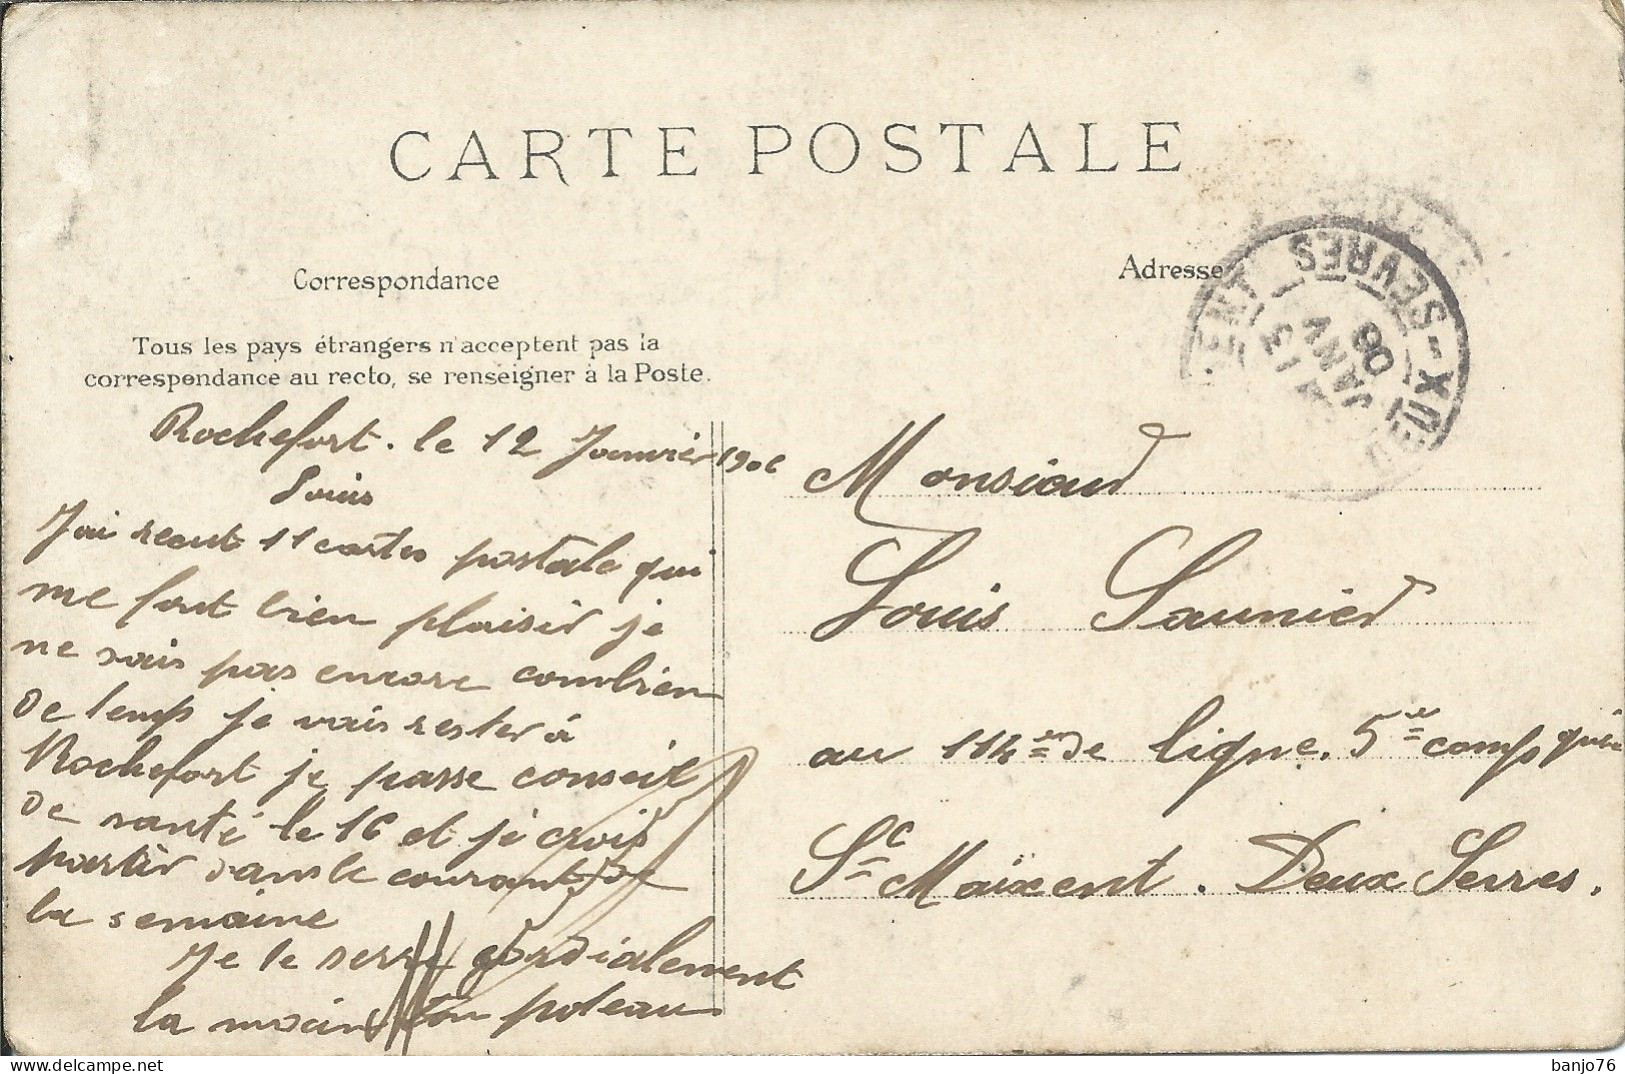 CARTE POSTALE
Correspondance
Adresse
Tous les pays étrangers n'acceptent pas la
correspondance au recto, se renseigner à la Poste.
DEUX-SÈVRES
13
JANV
06
Rochefort. le 12 Janvier 1906
Louis
J'ai recut 11 cartes postale qui
me font bien plaisir je
ne sais pas encore combien
de temp je vais rester à
Rochefort je passe conseil
de santé le 16 et je crois
partir dans le courant de
la semaine
Je te serre cordialement
la main ton poteau
Monsieur
Louis Saunier
au 114 de ligne. 5 comp
St Maixent. Deux Serres.
banjo76